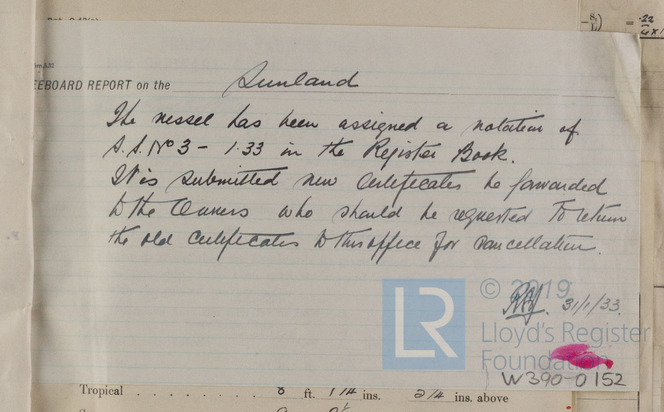 = 22
EEBOARD REPORT on the Sunland
The vessel has been assigned a notation of
S.S. No 3 - 1.33 in the Register Book.
It is submitted new Certificates be forwarded
to the Owners who should be requested to return
the old Certificates to this office for cancellation.
31/1/33.
© 2019
LR
Lloyd's Register
Foundation
W390-0152
Tropical . . . . . . . . . 8 ft. 1 1/4 ins. 2 1/4 ins. above